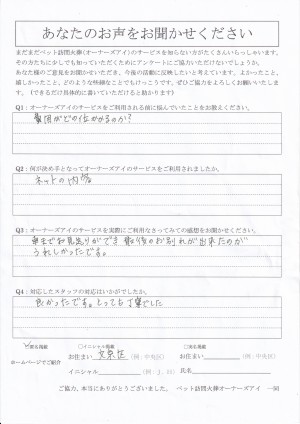 あなたのお声をお聞かせください
まだまだペット訪問火葬(オーナーズアイ)のサービスを知らない方がたくさんいらっしゃいます。
その方たちに少しでも知っていただくためにアンケートにご協力いただけないでしょうか。
あなた様のご意見をお聞かせいただき、今後の活動に反映したいと考えています。よかったこと、
嬉しかったこと、どのような些細なことでもけっこうです。ぜひご協力をよろしくお願いいたします。
(できるだけ具体的に書いていただけると助かります)
Q1：オーナーズアイのサービスをご利用される前に悩んでいたことをお教えください。
費用がどの位かかるのか?
Q2：何が決め手となってオーナーズアイのサービスをご利用されましたか。
ネットの内容
Q3：オーナーズアイのサービスを実際にご利用なさってみての感想をお聞かせください。
車までお見送りができ 最後のお別れが出来たのが
うれしかったです。
Q4：対応したスタッフの対応はいかがでしたか。
良かったです。とっても丁寧でした
匿名掲載 ○イニシャル掲載 ○実名掲載
ホームページでご紹介
お住まい 文京区 (例：中央区) お住まい (例：中央区)
イニシャル (例：J、H) 氏名
ご協力、本当にありがとうございました。 ペット訪問火葬オーナーズアイ 一同